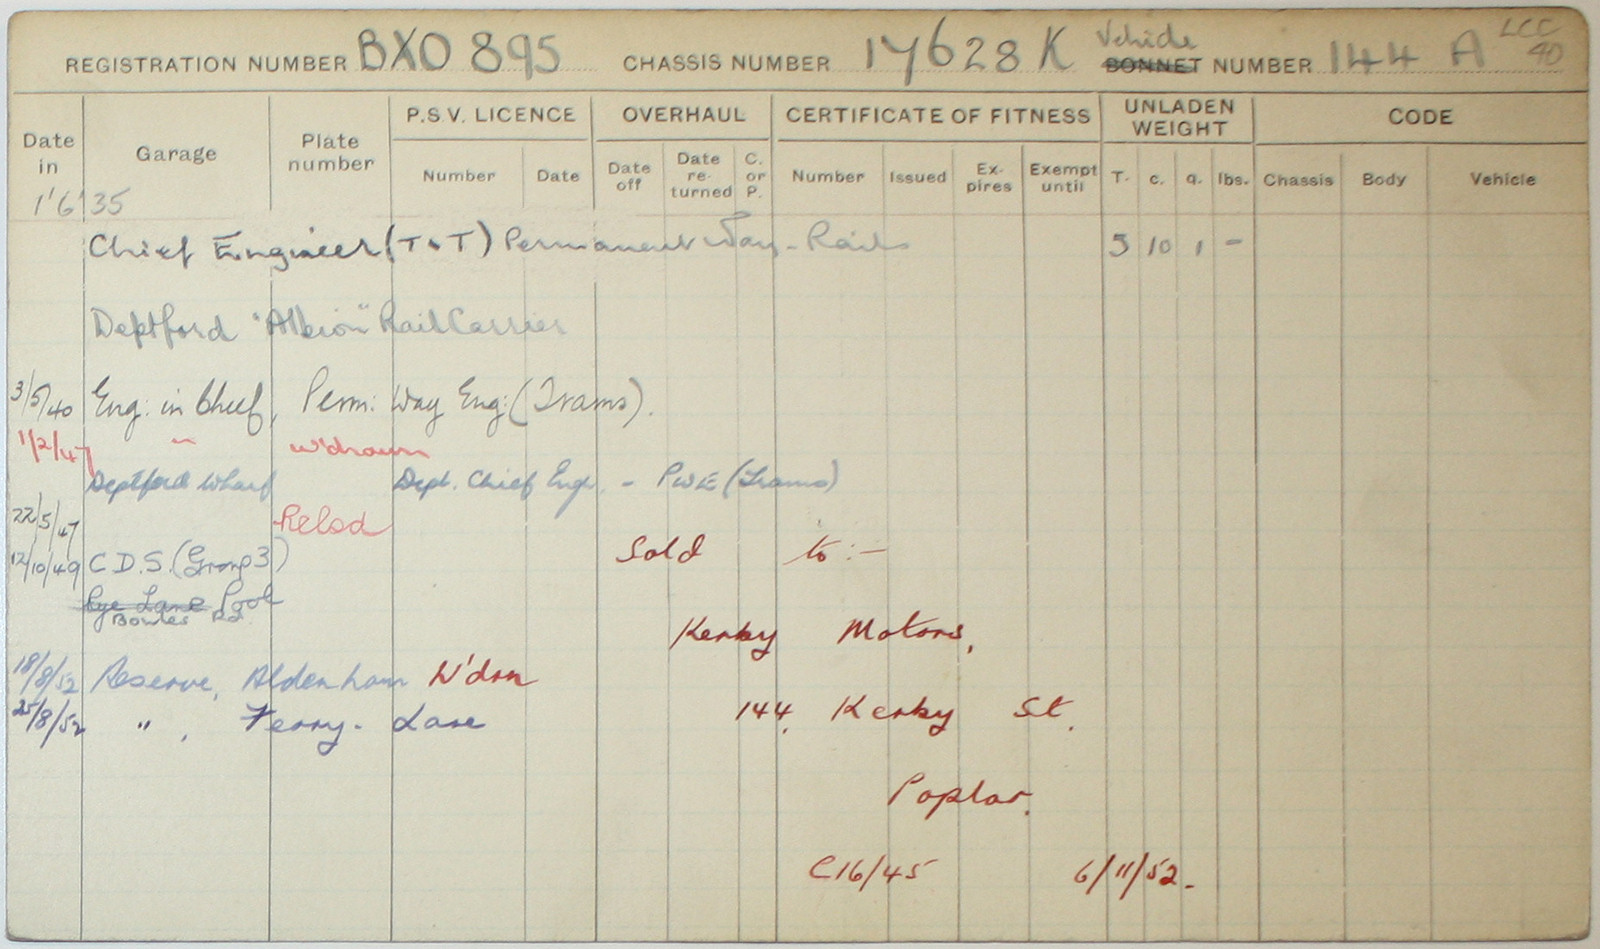 REGISTRATION NUMBER BXO 895 CHASSIS NUMBER 17628 K Vehicle BONNET NUMBER 144 A LCC 40
Date in Garage Plate number P.S.V. LICENCE OVERHAUL CERTIFICATE OF FITNESS UNLADEN WEIGHT CODE
Number Date Date off Date re-turned C. or P. Number Issued Ex-pires Exempt until T. c. q. lbs. Chassis Body Vehicle
1'6'35
Chief Engineer (T & T) Permanent Way - Rails 5 10 1 -
Deptford "Albion" Rail Carrier
3/5/40 Eng: in Chief, Perm: Way Eng: (Trams).
1/2/47 " w'drawn
Deptford Wharf Dept. Chief Engr. - PWE (Trams)
22/5/47 Relsd
12/10/49 C.D.S. (Group 3) Sold to :-
Rye Lane Pool
Bowles Rd.
Kerby Motors,
18/8/52 Reserve, Aldenham W'drn
25/8/52 " , Ferry - Lane 144, Kerby St.
Poplar.
C16/45 6/11/52.